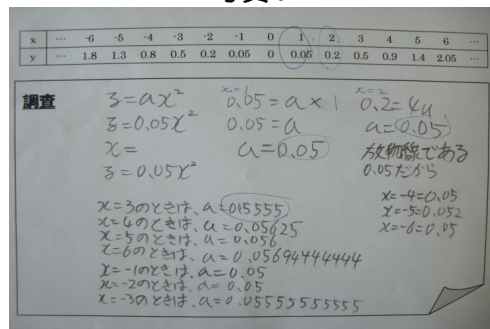 x … -6 -5 -4 -3 -2 -1 0 1 2 3 4 5 6 …
y … 1.8 1.3 0.8 0.5 0.2 0.05 0 0.05 0.2 0.5 0.9 1.4 2.05 …
調査
y=ax²
y=0.05x²
x=
y=0.05x²
x=1
0.05=a×1
0.05=a
a=0.05
x=2
0.2=4a
a=0.05
放物線である
0.05だから
x=-4=0.05
x=-5=0.052
x=-6=0.05
x=3のときは、a=0.15555
x=4のときは、a=0.05625
x=5のときは、a=0.056
x=6のときは、a=0.05694444444
x=-1のときは、a=0.05
x=-2のときは、a=0.05
x=-3のときは、a=0.05555555555